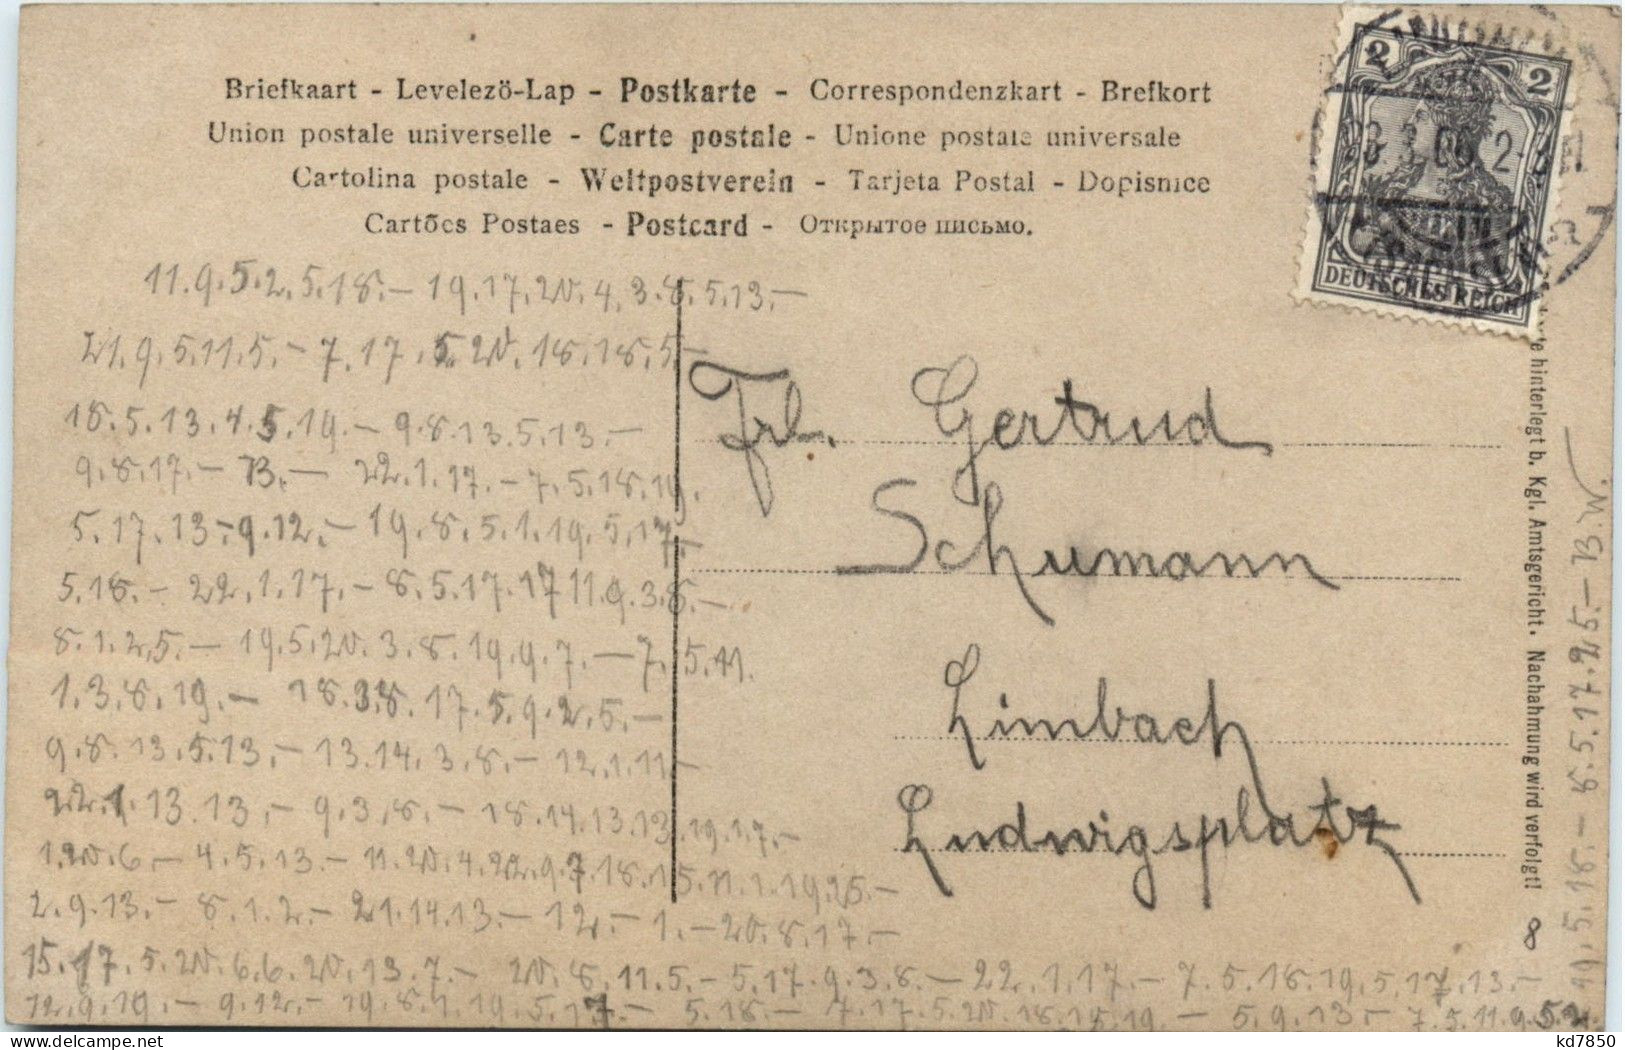 Briefkaart - Levelezö-Lap - Postkarte - Correspondenzkart - Brefkort
Union postale universelle - Carte postale - Unione postale universale
Cartolina postale - Weltpostverein - Tarjeta Postal - Dopisnice
Cartões Postaes - Postcard - Открытое письмо.
2 2
3 3 06 2-
DEUTSCHES REICH
11.9.5.2.5.18.— 19.17.20.4.3.8.5.13.—
21.9.5.11.5.— 7.17.5.20.18.18.5.—
18.5.13.4.5.19.— 9.8.13.5.13.—
9.8.17.— 13.— 22.1.17.— 7.5.18.19.
5.17.13.- 9.12.— 19.8.5.1.19.5.17.—
5.18.— 22.1.17.— 8.5.17.17.11.9.3.8.—
8.1.2.5.— 19.5.20.3.8.19.9.7.— 7.5.11.
1.3.8.19.— 18.3.8.17.5.9.2.5.—
9.8.13.5.13.— 13.14.3.8.— 12.1.11.—
22.1.13.13.— 9.3.8.— 18.14.13.13.19.1.7.—
1.20.6.— 4.5.13.— 11.20.4.22.9.7.18.15.11.1.19.25.—
2.9.13.— 8.1.2.— 21.14.13.— 12.— 1.— 20.8.17.—
15.17.5.20.6.6.20.13.7.— 20.8.11.5.— 5.17.9.3.8.— 22.1.17.— 7.5.18.19.5.17.13.—
12.9.19.— 9.12.— 19.8.1.19.5.17.— 5.18.— 7.17.5.20.18.15.19.— 5.9.13.— 7.5.11.9.5.2.
11.5.18.— 8.5.17.25.— 13.
Frl. Gertrud
Schumann
Limbach
Ludwigsplatz
hinterlegt b. Kgl. Amtsgericht. Nachahmung wird verfolgt!
8
kd7850